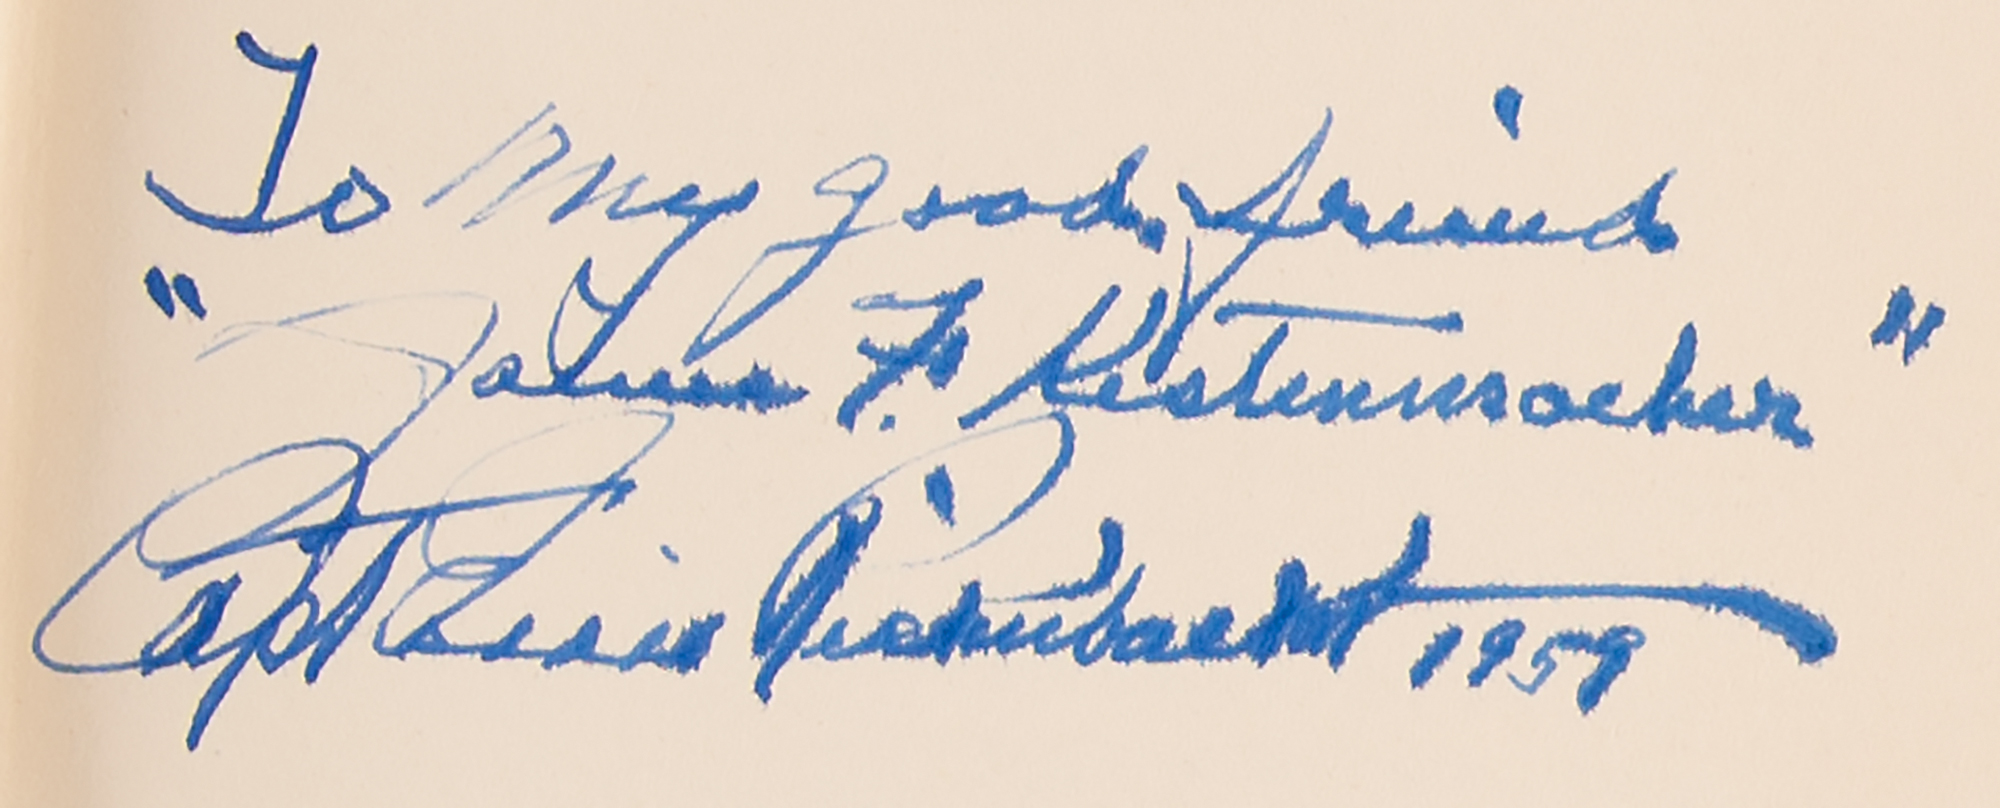 To My good friend
"John F. Kestenmacher"
Capt Eddie Rickenbacker 1959